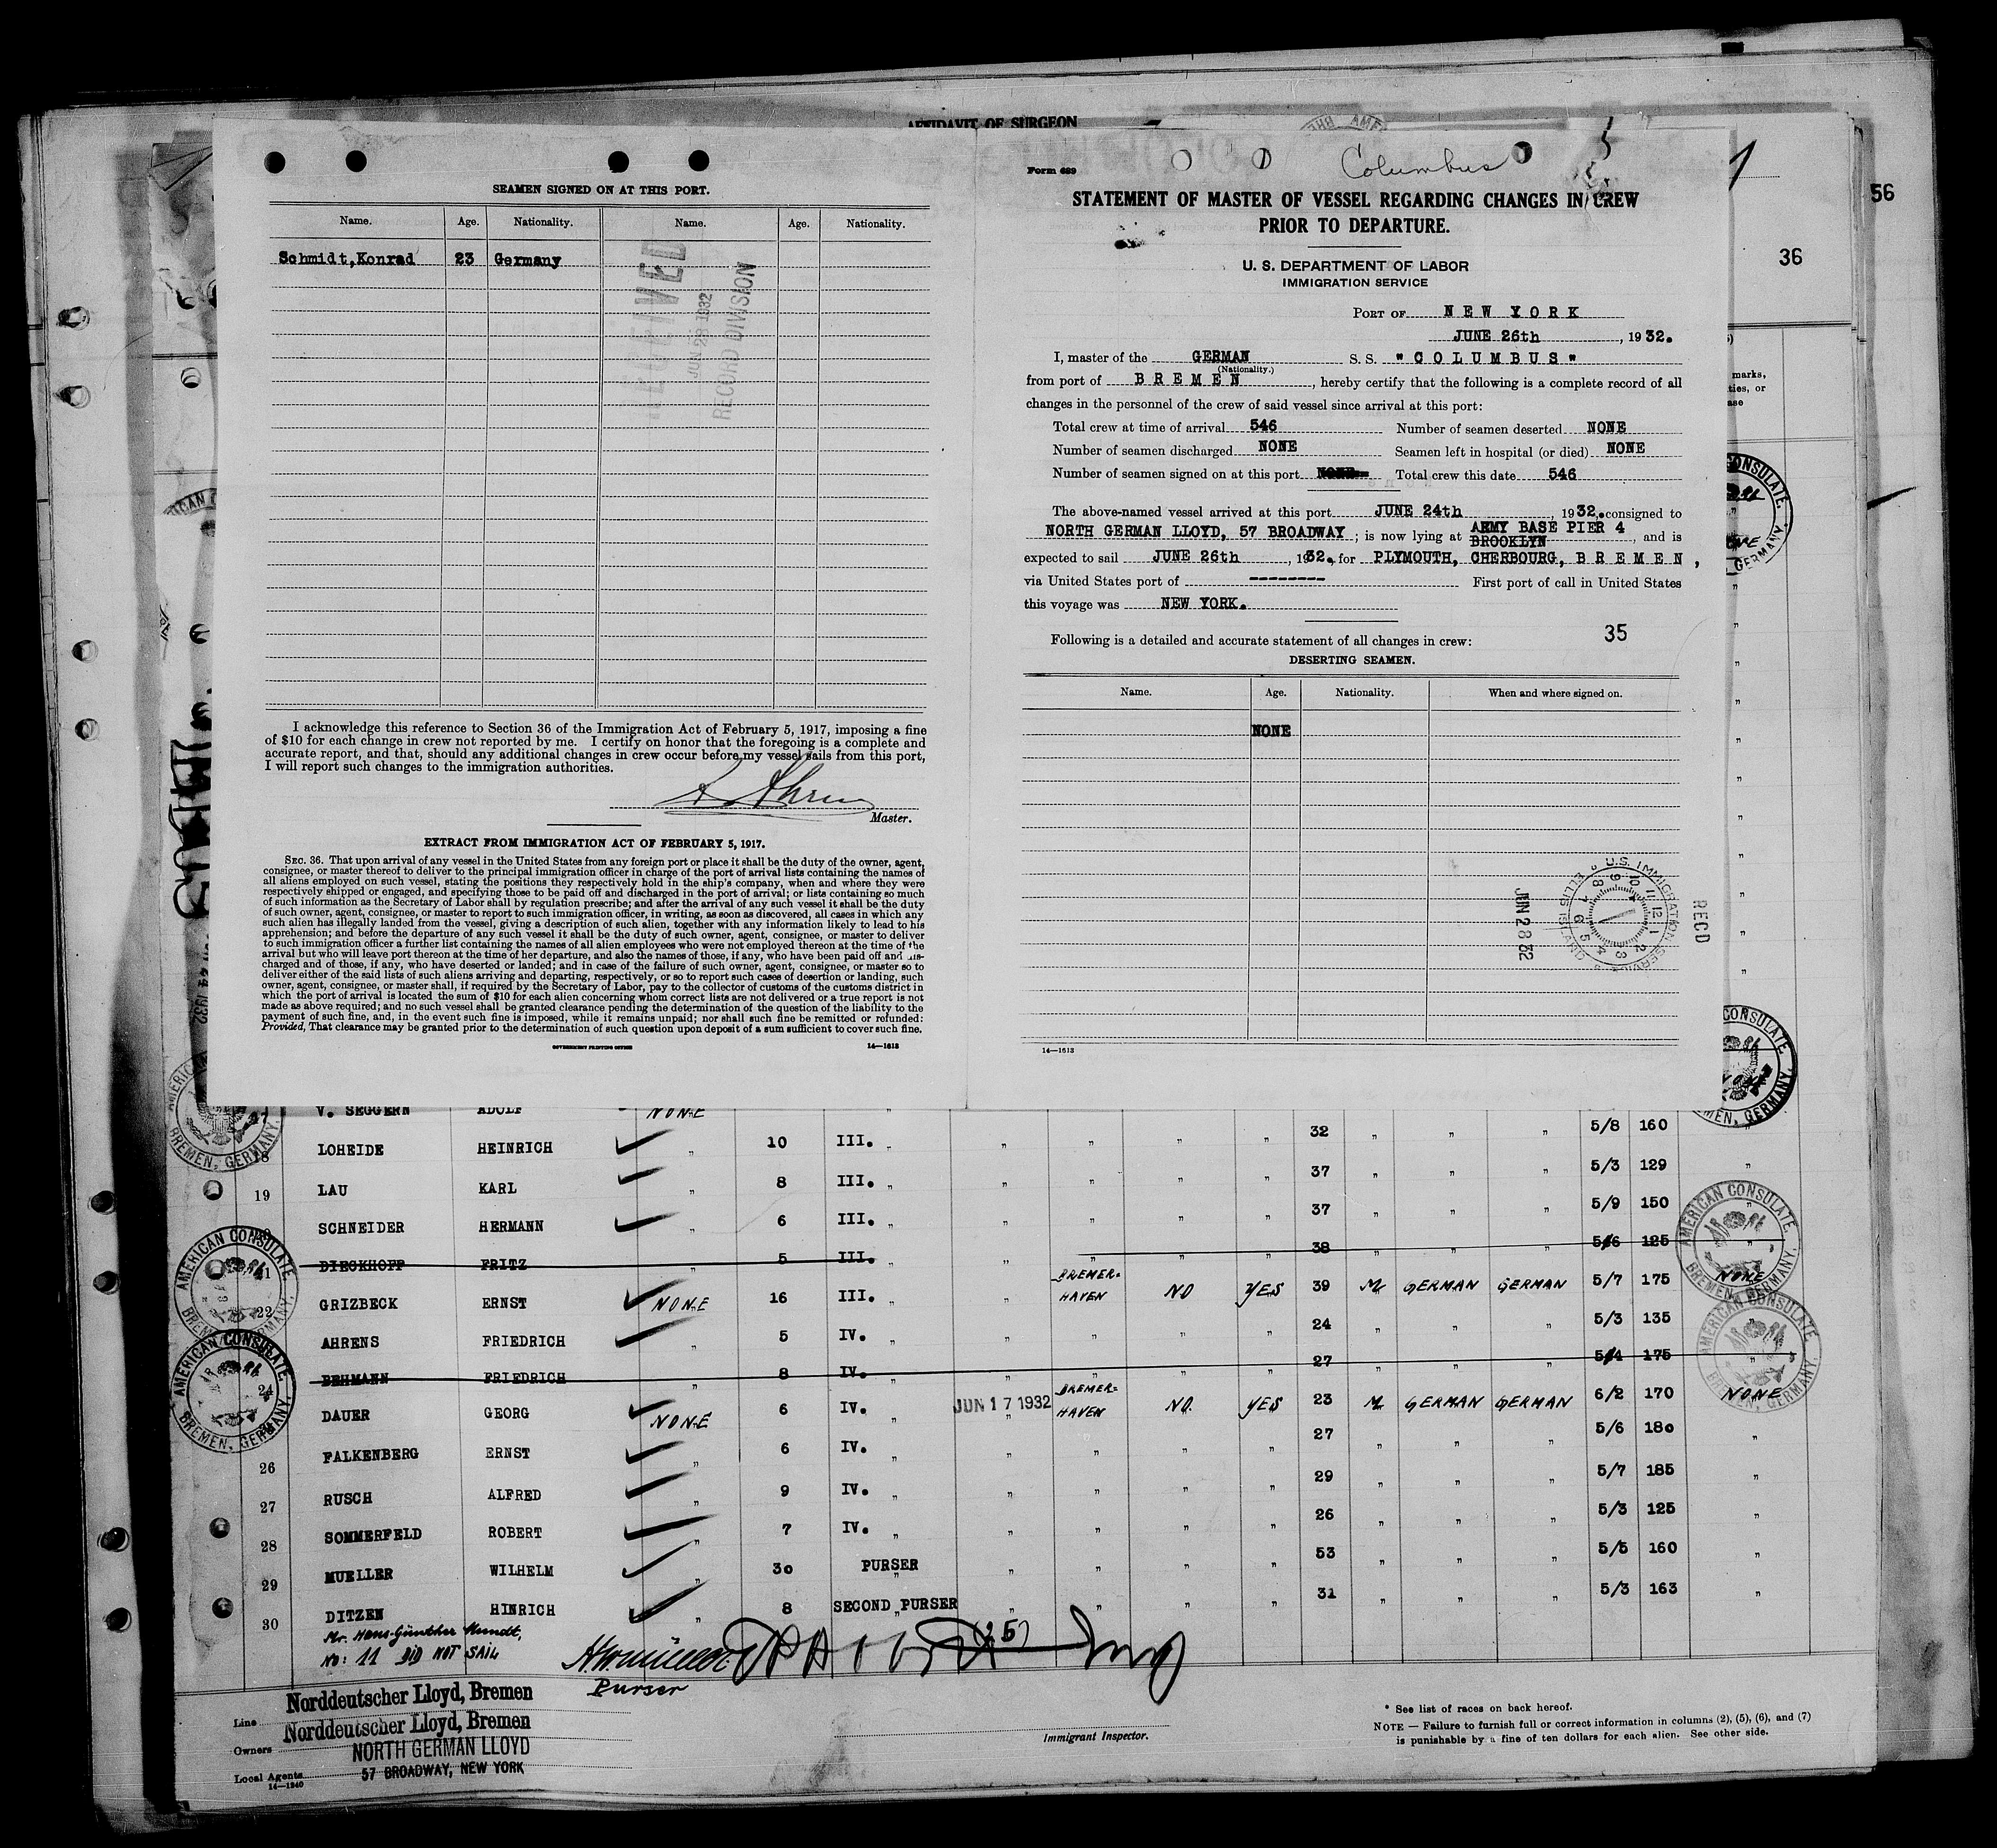 AFFIDAVIT OF SURGEON
SEAMEN SIGNED ON AT THIS PORT.
Name. Age. Nationality. Name. Age. Nationality.
Schmidt,Konrad 23 Germany
RECEIVED
JUN 28 1932
RECORD DIVISION
I acknowledge this reference to Section 36 of the Immigration Act of February 5, 1917, imposing a fine
of $10 for each change in crew not reported by me. I certify on honor that the foregoing is a complete and
accurate report, and that, should any additional changes in crew occur before my vessel sails from this port,
I will report such changes to the immigration authorities.
Master.
EXTRACT FROM IMMIGRATION ACT OF FEBRUARY 5, 1917.
SEC. 36. That upon arrival of any vessel in the United States from any foreign port or place it shall be the duty of the owner, agent,
consignee, or master thereof to deliver to the principal immigration officer in charge of the port of arrival lists containing the names of
all aliens employed on such vessel, stating the positions they respectively hold in the ship's company, when and where they were
respectively shipped or engaged, and specifying those to be paid off and discharged in the port of arrival; or lists containing so much
of such information as the Secretary of Labor shall by regulation prescribe; and after the arrival of any such vessel it shall be the duty
of such owner, agent, consignee, or master to report to such immigration officer, in writing, as soon as discovered, all cases in which any
such alien has illegally landed from the vessel, giving a description of such alien, together with any information likely to lead to his
apprehension; and before the departure of any such vessel it shall be the duty of such owner, agent, consignee, or master to deliver
to such immigration officer a further list containing the names of all alien employees who were not employed thereon at the time of the
arrival but who will leave port thereon at the time of her departure, and also the names of those, if any, who have been paid off and dis-
charged and of those, if any, who have deserted or landed; and in case of the failure of such owner, agent, consignee, or master so to
deliver either of the said lists of such aliens arriving and departing, respectively, or so to report such cases of desertion or landing, such
owner, agent, consignee, or master shall, if required by the Secretary of Labor, pay to the collector of customs of the customs district in
which the port of arrival is located the sum of $10 for each alien concerning whom correct lists are not delivered or a true report is not
made as above required; and no such vessel shall be granted clearance pending the determination of the question of the liability to the
payment of such fine, and, in the event such fine is imposed, while it remains unpaid; nor shall such fine be remitted or refunded:
Provided, That clearance may be granted prior to the determination of such question upon deposit of a sum sufficient to cover such fine.
GOVERNMENT PRINTING OFFICE 14—1613
Form 689 Columbus
STATEMENT OF MASTER OF VESSEL REGARDING CHANGES IN CREW
PRIOR TO DEPARTURE.
U. S. DEPARTMENT OF LABOR
IMMIGRATION SERVICE
PORT OF NEW YORK
JUNE 26th, 1932.
I, master of the GERMAN S. S. "COLUMBUS"
(Nationality.)
from port of BREMEN, hereby certify that the following is a complete record of all
changes in the personnel of the crew of said vessel since arrival at this port:
Total crew at time of arrival 546 Number of seamen deserted NONE
Number of seamen discharged NONE Seamen left in hospital (or died) NONE
Number of seamen signed on at this port NONE Total crew this date 546
The above-named vessel arrived at this port JUNE 24th, 1932. consigned to
NORTH GERMAN LLOYD, 57 BROADWAY; is now lying at ARMY BASE PIER 4 BROOKLYN, and is
expected to sail JUNE 26th, 1932., for PLYMOUTH, CHERBOURG, BREMEN,
via United States port of -------- First port of call in United States
this voyage was NEW YORK.
35
Following is a detailed and accurate statement of all changes in crew:
DESERTING SEAMEN.
Name. Age. Nationality. When and where signed on.
NONE
U.S. IMMIGRATION SERVICE ELLIS ISLAND
JUN 28 32
RECD
14—1613
56
36
marks,
ties, or
ase
V. SEGGERN ADOLF NONE
18 LOHEIDE HEINRICH " 10 III. " " " " " 32 " " " 5/8 160 "
19 LAU KARL " 8 III. " " " " " 37 " " " 5/3 129 "
SCHNEIDER HERMANN " 6 III. " " " " " 37 " " " 5/9 150 "
21 DIECKHOFF FRITZ " 5 III. " " " " " 38 " " " 5/6 125 "
22 GRIZBECK ERNST NONE 16 III. " " BREMER=HAVEN NO YES 39 M GERMAN GERMAN 5/7 175 NONE
AHRENS FRIEDRICH " 5 IV. " " " " " 24 " " " 5/3 135 "
24 BEHMANN FRIEDRICH " 8 IV. " " " " " 27 " " " 5/4 175 "
DAUER GEORG NONE 6 IV. " JUN 17 1932 BREMER=HAVEN NO YES 23 M GERMAN GERMAN 6/2 170 NONE
26 FALKENBERG ERNST " 6 IV. " " " " " 27 " " " 5/6 180 "
27 RUSCH ALFRED " 9 IV. " " " " " 29 " " " 5/7 185 "
28 SOMMERFELD ROBERT " 7 IV. " " " " " 26 " " " 5/3 125 "
29 MUELLER WILHELM " 30 PURSER " " " " " 53 " " " 5/5 160 "
30 DITZEN HINRICH " 8 SECOND PURSER " " " " 31 " " " 5/3 163 "
Mr. Hans-Günther Mundt,
No: 11 DID NOT SAIL
(25)
Purser
Line Norddeutscher Lloyd, Bremen
Owners Norddeutscher Lloyd, Bremen
NORTH GERMAN LLOYD
Local Agents 57 BROADWAY, NEW YORK
14—1940
Immigrant Inspector.
* See list of races on back hereof.
NOTE — Failure to furnish full or correct information in columns (2), (5), (6), and (7)
is punishable by a fine of ten dollars for each alien. See other side.
AMERICAN CONSULATE
BREMEN, GERMANY.